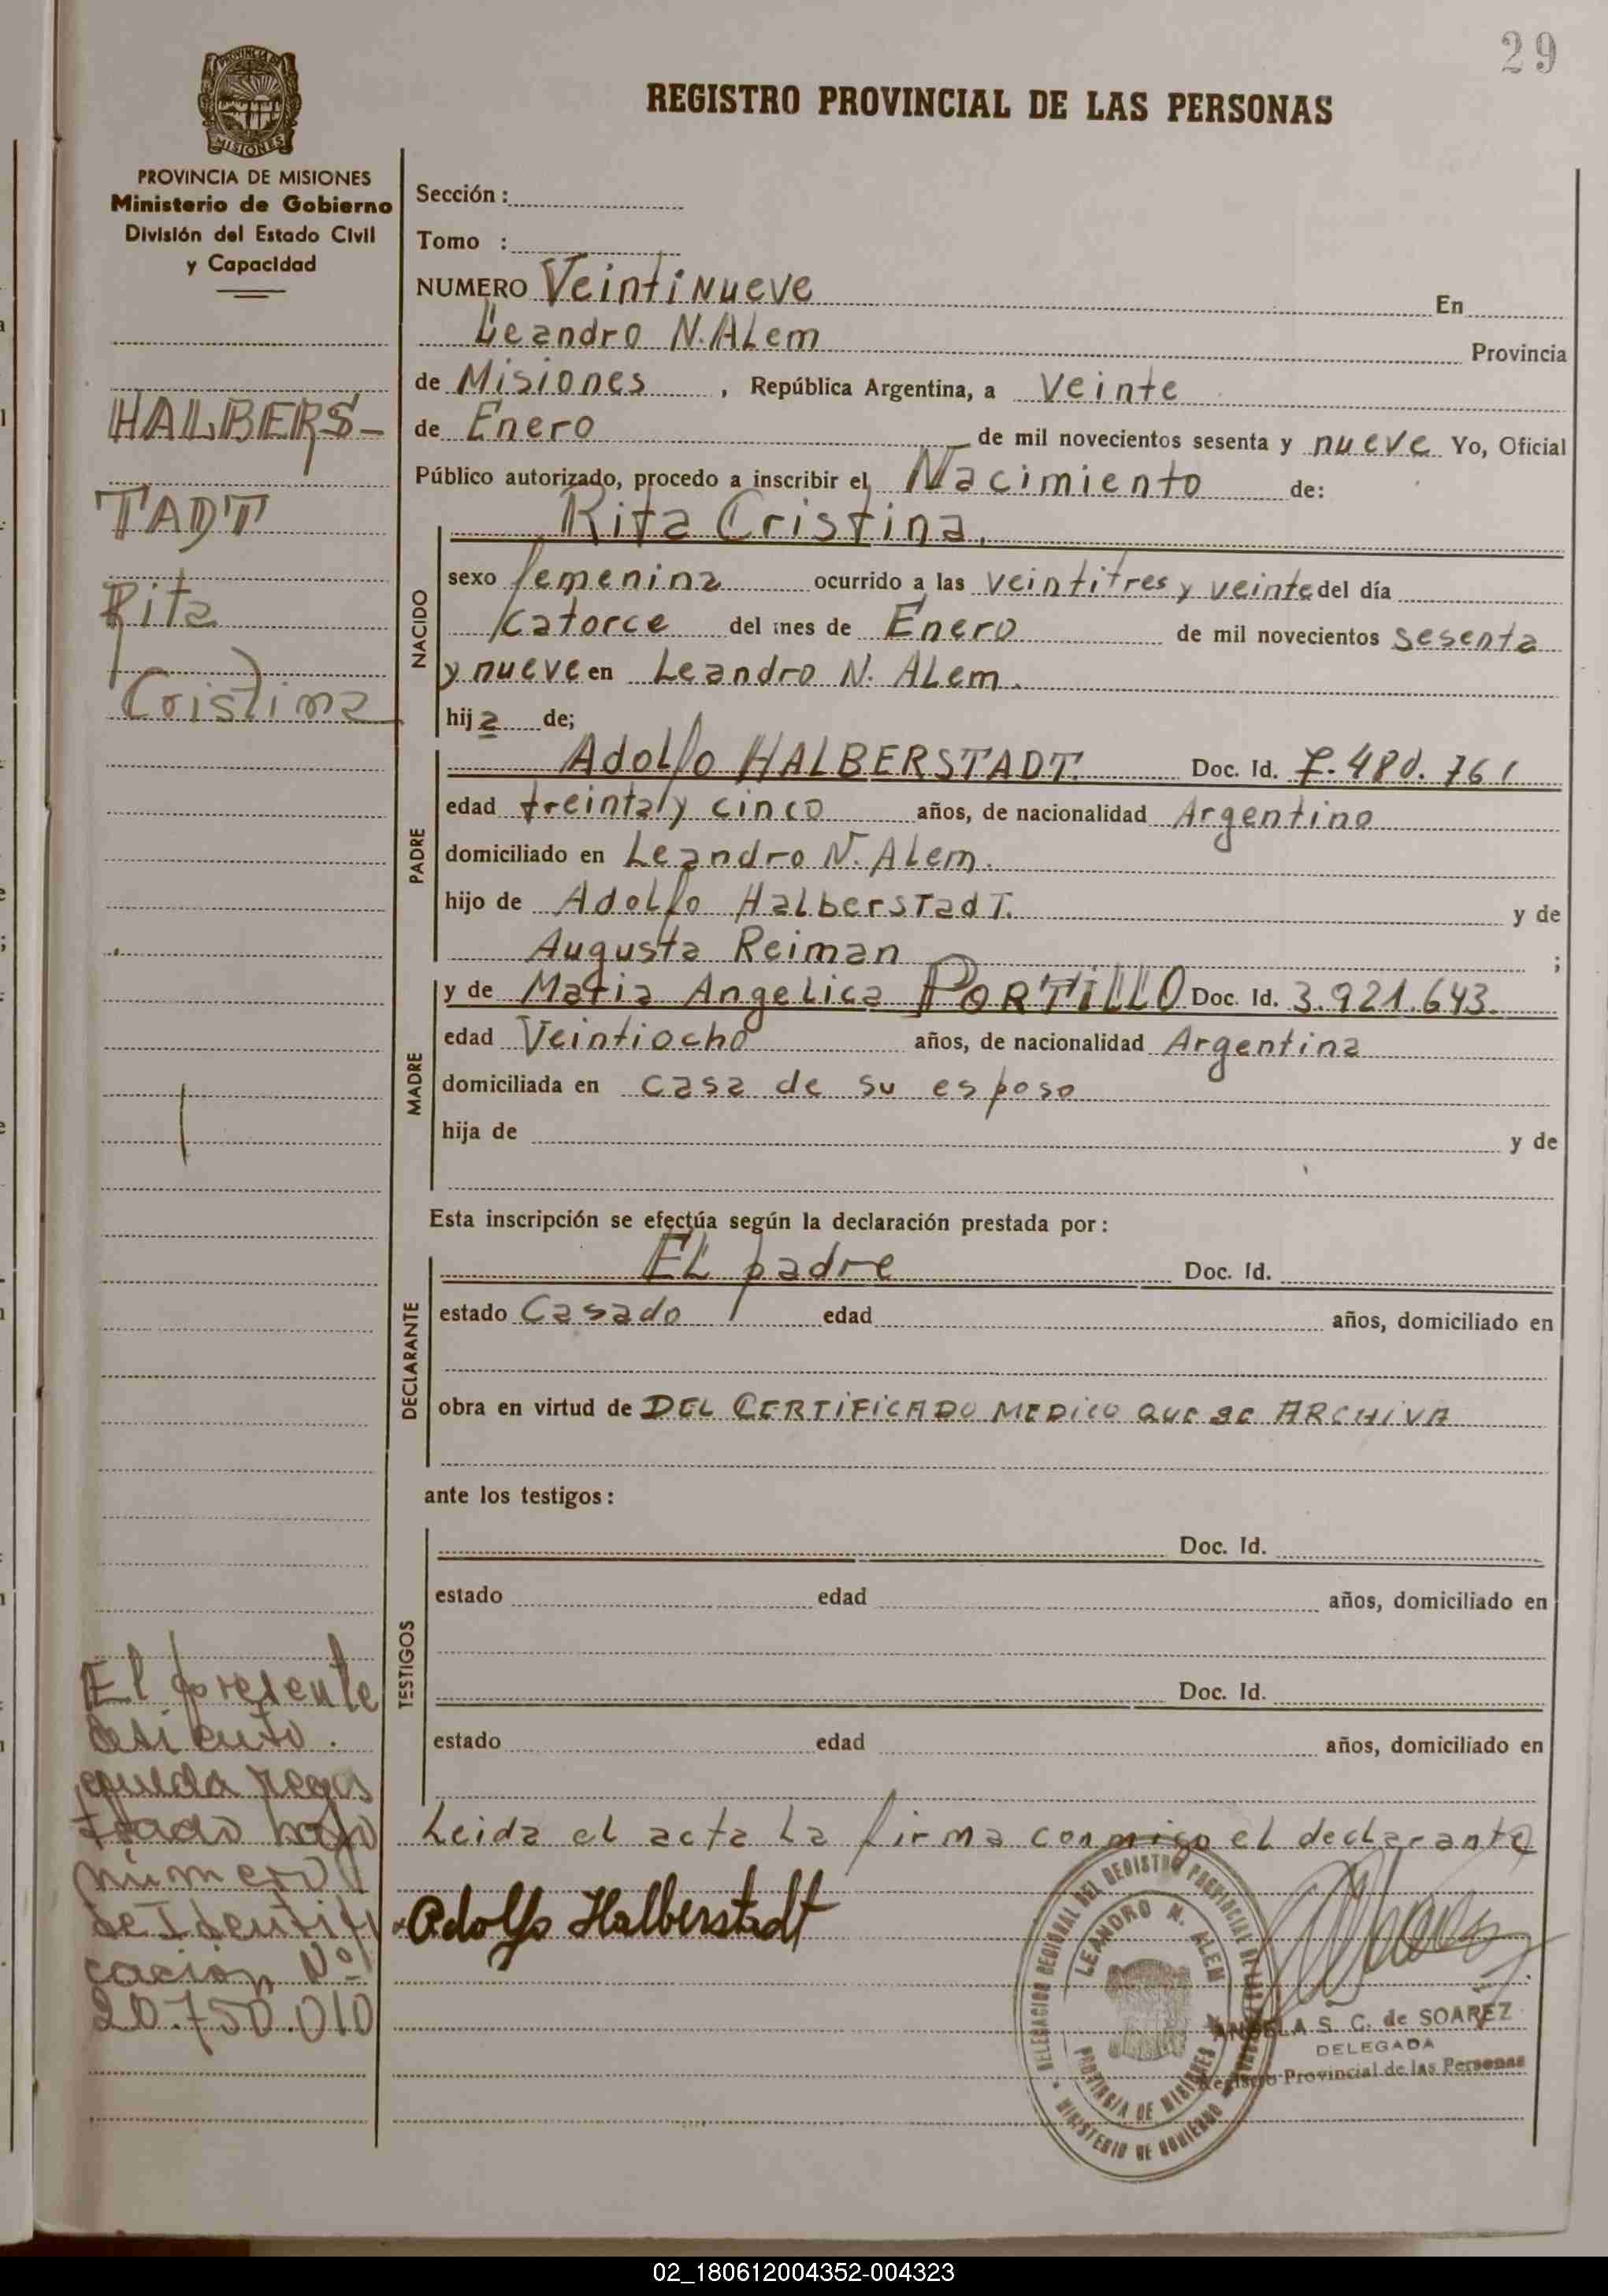 29
REGISTRO PROVINCIAL DE LAS PERSONAS
PROVINCIA DE
MISIONES
PROVINCIA DE MISIONES
Ministerio de Gobierno
División del Estado Civil
y Capacidad
HALBERS-
TADT
Rita
Cristina
Sección :
Tomo :
NUMERO Veintinueve En
Leandro N. ALem Provincia
de Misiones , República Argentina, a veinte
de Enero de mil novecientos sesenta y nueve Yo, Oficial
Público autorizado, procedo a inscribir el Nacimiento de:
NACIDO
Rita Cristina,
sexo femenina ocurrido a las veintitres y veinte del día
catorce del mes de Enero de mil novecientos sesenta
y nueve en Leandro N. ALem.
hija de;
PADRE
Adolfo HALBERSTADT. Doc. Id. 7.480.761
edad treintaly cinco años, de nacionalidad Argentino
domiciliado en Leandro N. Alem.
hijo de Adolfo HalberstadT. y de
Augusta Reiman ;
MADRE
y de Maria Angelica PORTILLO Doc. Id. 3.921.643.
edad Veintiocho años, de nacionalidad Argentina
domiciliada en casa de su esposo
hija de y de
Esta inscripción se efectúa según la declaración prestada por:
DECLARANTE
EL padre Doc. Id.
estado Casado edad años, domiciliado en
obra en virtud de DEL CERTIFICADO MEDICO QUE SE ARCHIVA
ante los testigos:
TESTIGOS
Doc. Id.
estado edad años, domiciliado en
Doc. Id.
estado edad años, domiciliado en
Leida el acta La firma conmigo el declarante
Adolfo Halberstadt
El presente
asiento.
queda regis
trado bajo
número
de Identifi
cación Nº
20.750.010
DELEGACION REGIONAL DEL REGISTRO PROVINCIAL DE LAS PERSONAS
LEANDRO N. ALEM
PROVINCIA DE MISIONES
MINISTERIO DE GOBIERNO
ANGELA S. C. de SOAREZ
DELEGADA
Registro Provincial de las Personas
02_180612004352-004323